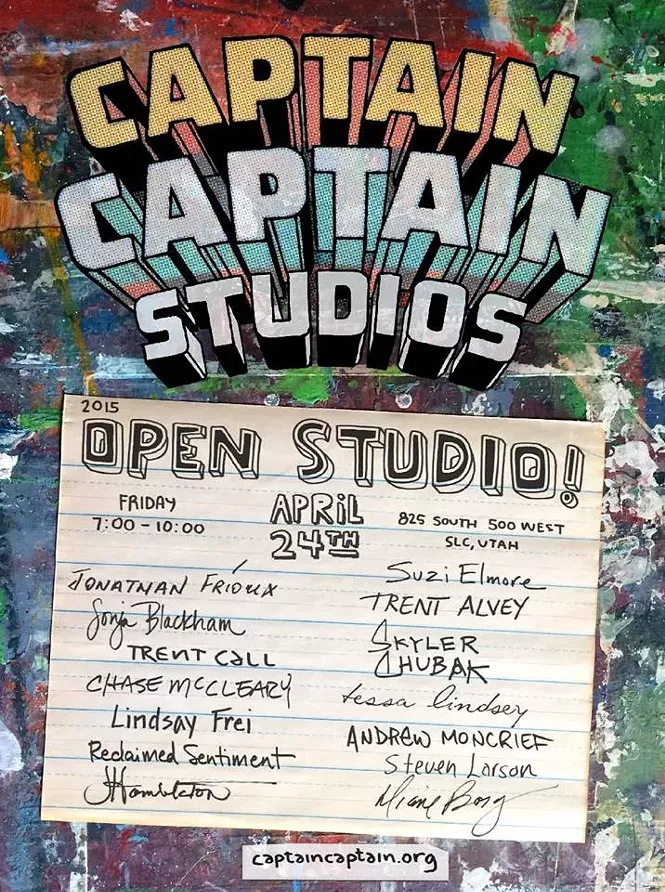 CAPTAIN
CAPTAIN
STUDIOS
2015
OPEN STUDIO!
FRIDAY
7:00 - 10:00
APRIL
24TH
825 SOUTH 500 WEST
SLC, UTAH
JONATHAN FRIOUX
Sonja Blackham
TRENT CALL
CHASE McCLEARY
Lindsay Frei
Reclaimed Sentiment
JHambleton
Suzi Elmore
TRENT ALVEY
SKYLER
CHUBAK
tessa lindsey
ANDREW MONCRIEF
Steven Larson
captaincaptain.org